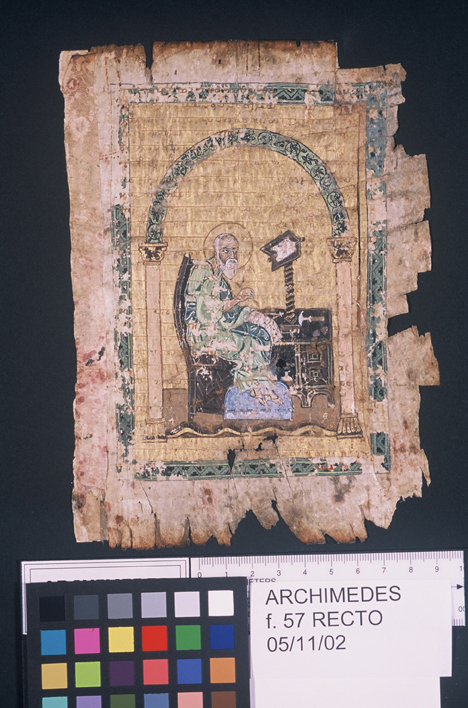 0 1 2 3 4 5 6 7 8 9
METERS
ARCHIMEDES
f. 57 RECTO
05/11/02